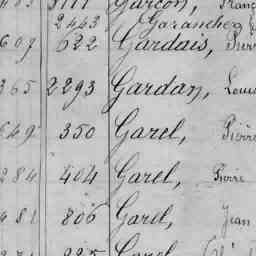 Garçon,
2443 Garanche
607 622 Gardais, Pierre
365 2293 Gardan, Louis
649 350 Garel, Pierre
284 404 Garel, Pierre
481 806 Garel, Jean
Garel